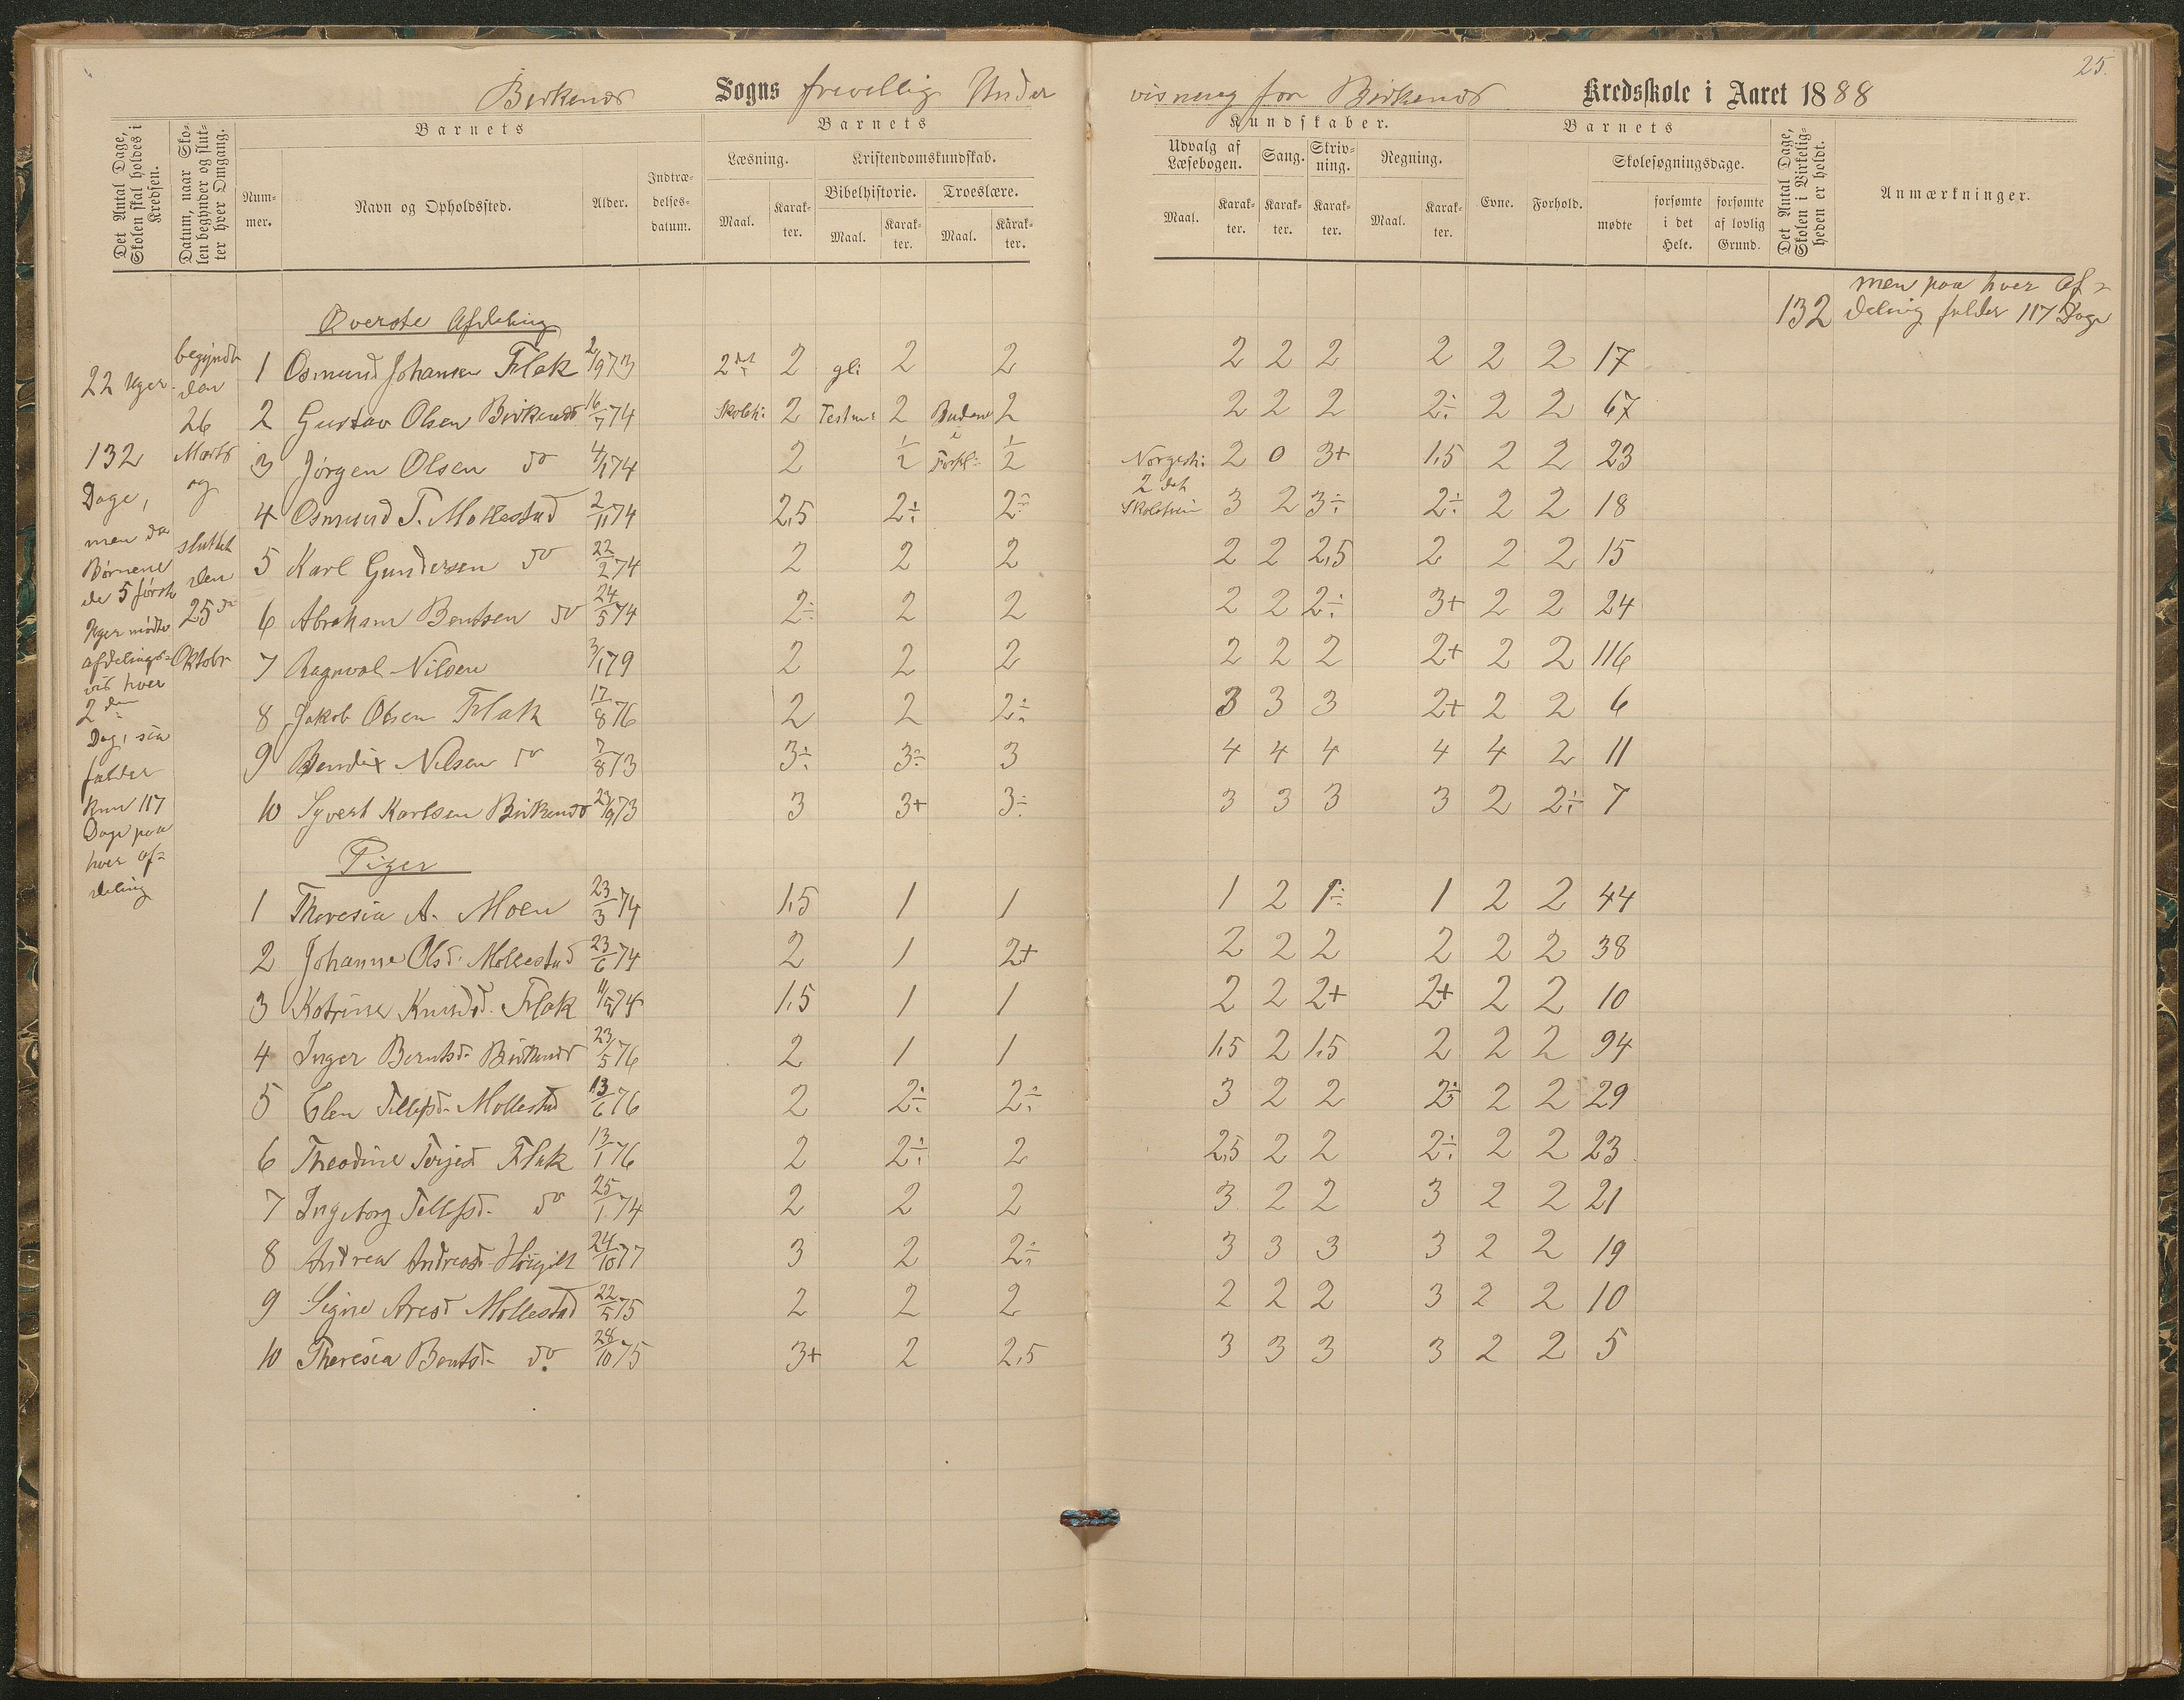 25.
Birkenes Sogns frivillig Under visning for Birkenes Kredsskole i Aaret 1888
Det Antal Dage, Skolen skal holdes i Kredsen.
Datum, naar Skolen begynder og slutter hver Omgang.
Barnets
Nummer.
Navn og Opholdssted.
Alder.
Indtrædelsesdatum.
Barnets
Læsning.
Maal.
Karakter.
Kristendomskundskab.
Bibelhistorie.
Maal.
Karakter.
Troeslære.
Maal.
Karakter.
Kundskaber.
Udvalg af Læsebogen.
Maal.
Karakter.
Sang.
Karakter.
Skrivning.
Karakter.
Regning.
Maal.
Karakter.
Barnets
Evne.
Forhold.
Skolesøgningsdage.
mødte
forsømte i det Hele.
forsømte af lovlig Grund.
Det Antal Dage, Skolen i Virkeligheden er holdt.
Anmærkninger.
132 men paa hver af=
deling falder 117 Dage
22 Uger.
132
Dage,
men da
Børnene
de 5 første
Uger mødte
afdelings=
vis hver
2den
Dag, saa
falder
kun 117
Dage paa
hver af=
deling
begyndte
den
26
Marts
og
sluttet
den
25de
Oktober
Øverste Afdeling
1 Osmund Johansen Flak 2/9 73 2det 2 gl: 2 2 2 2 2 2 2 2 17
2 Gustav Olsen Birkenes 16/7 74 Skolet: 2 Testm: 2 Budene 2 2 2 2 2÷ 2 2 67
3 Jørgen Olsen do 4/1 74 2 1/2 i Forkl: 1/2 Norgesh: 2 0 3+ 1,5 2 2 23
4 Osmund T. Mollestad 2/11 74 2,5 2÷ 2÷ 2det Skoletrin 3 2 3÷ 2÷ 2 2 18
5 Karl Gundersen do 22/2 74 2 2 2 2 2 2,5 2 2 2 15
6 Abraham Bentsen do 24/5 74 2÷ 2 2 2 2 2÷ 3+ 2 2 24
7 Ragnval Nilsen 3/1 79 2 2 2 2 2 2 2+ 2 2 116
8 Jakob Olsen Flak 17/8 76 2 2 2÷ 3 3 3 2+ 2 2 6
9 Bendix Nilsen do 7/8 73 3÷ 3÷ 3 4 4 4 4 4 2 11
10 Syvert Karlsen Birkenes 23/9 73 3 3+ 3÷ 3 3 3 3 2 2÷ 7
Piger
1 Theresia A. Moen 23/3 74 1,5 1 1 1 2 1÷ 1 2 2 44
2 Johanne Olsd. Mollestad 23/6 74 2 1 2+ 2 2 2 2 2 2 38
3 Katrine Knudsd. Flak 11/5 74 1,5 1 1 2 2 2+ 2+ 2 2 10
4 Inger Berntsd. Birkenes 23/5 76 2 1 1 1,5 2 1,5 2 2 2 94
5 Elen Tellefsd. Mollestad 13/6 76 2 2÷ 2÷ 3 2 2 2÷ 2 2 29
6 Theodine Terjesd Flak 13/1 76 2 2÷ 2 2,5 2 2 2÷ 2 2 23
7 Ingeborg Tellefsd. do 25/1 74 2 2 2 3 2 2 3 2 2 21
8 Andrea Andreasd. 24/10 77 3 2 2÷ 3 3 3 3 2 2 19
9 Signe Aresd Mollestad 22/5 75 2 2 2 2 2 2 3 2 2 10
10 Theresia Bentsd. do. 28/10 75 3+ 2 2,5 3 3 3 3 2 2 5